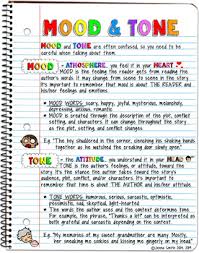 MOOD & TONE
MOOD and TONE are often confused, so you need to be
careful when talking about them.
MOOD - ATMOSPHERE, you feel it in your HEART
MOOD is the feeling the reader gets from reading the
author's words. It may change from scene to scene in the story.
It's important to remember that mood is about THE READER and
his/her feelings and emotions.
MOOD WORDS: scary, happy, joyful, mysterious, melancholy,
depressing, anxious, romantic
MOOD is created through the description of the plot, conflict,
setting, and characters. It can change throughout the story
as the plot, setting, and conflict changes.
E.g. "He lay squirmed in the corner, clenching his shaking hands
together as he watched the creaking door slowly open."
TONE - the ATTITUDE, you understand it in your HEAD
TONE is the author's feelings, or attitude, toward the
story. It's the stance the author takes toward the story's
characters, plot, and conflict. It's important to remember
that TONE is about the AUTHOR and his/her attitude.
TONE WORDS: humorous, serious, sarcastic, optimistic,
pessimistic, sad, skeptical, light-hearted
The words that are used often determine the tone.
For example, the phrase, "Thanks a lot!" can be interpreted as
both grateful and sarcastic depending on the context.
E.g. "My memories of my sweet grandmother are many. Mostly,
her sneaking me cookies and kissing me gingerly on my head."